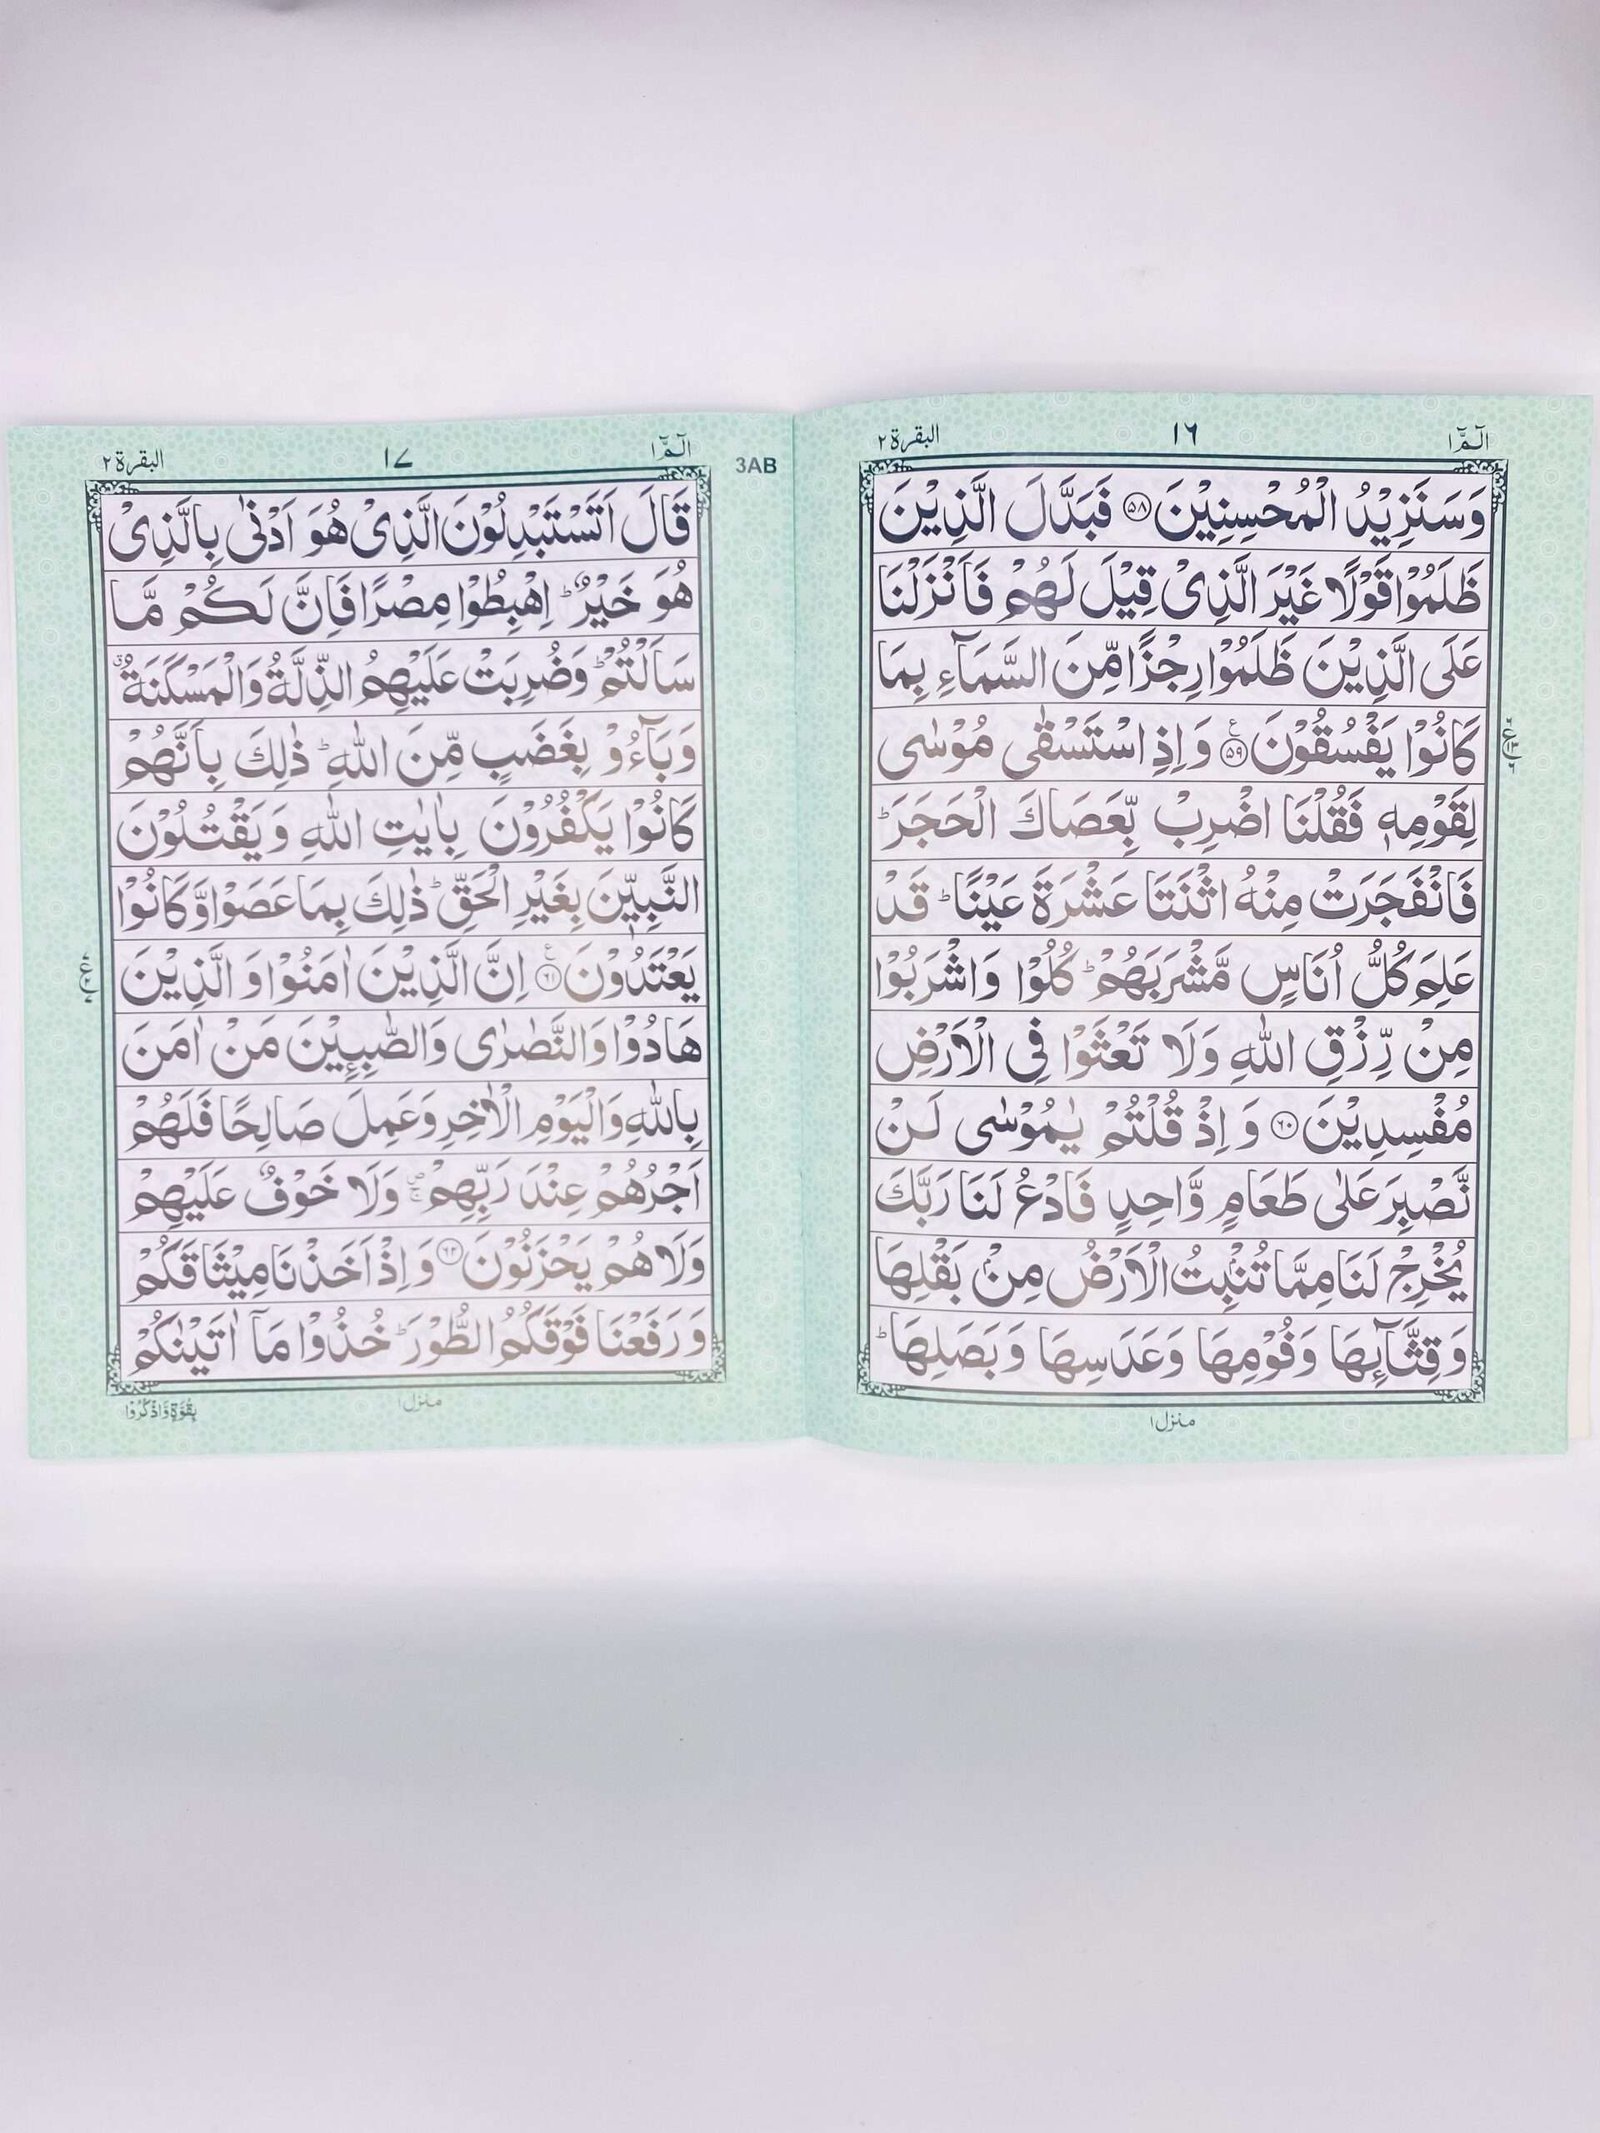 الٓمّٓ ١
١٦
البقرة ٢
وَسَنَزِيْدُ الْمُحْسِنِيْنَ ۝٥٨ فَبَدَّلَ الَّذِيْنَ
ظَلَمُوْا قَوْلًا غَيْرَ الَّذِىْ قِيْلَ لَهُمْ فَاَنْزَلْنَا
عَلَى الَّذِيْنَ ظَلَمُوْا رِجْزًا مِّنَ السَّمَآءِ بِمَا
كَانُوْا يَفْسُقُوْنَ ۝٥٩ۧ وَاِذِ اسْتَسْقٰى مُوْسٰى
لِقَوْمِهٖ فَقُلْنَا اضْرِبْ بِّعَصَاكَ الْحَجَرَ ؕ
فَانْفَجَرَتْ مِنْهُ اثْنَتَا عَشْرَةَ عَيْنًا ؕ قَدْ
عَلِمَ كُلُّ اُنَاسٍ مَّشْرَبَهُمْ ؕ كُلُوْا وَاشْرَبُوْا
مِنْ رِّزْقِ اللّٰهِ وَلَا تَعْثَوْا فِى الْاَرْضِ
مُفْسِدِيْنَ ۝٦٠ وَاِذْ قُلْتُمْ يٰمُوْسٰى لَنْ
نَّصْبِرَ عَلٰى طَعَامٍ وَّاحِدٍ فَادْعُ لَنَا رَبَّكَ
يُخْرِجْ لَنَا مِمَّا تُنْۢبِتُ الْاَرْضُ مِنْۢ بَقْلِهَا
وَقِثَّآئِهَا وَفُوْمِهَا وَعَدَسِهَا وَبَصَلِهَا ؕ
منزل ١
3AB
الٓمّٓ ١
١٧
البقرة ٢
قَالَ اَتَسْتَبْدِلُوْنَ الَّذِىْ هُوَ اَدْنٰى بِالَّذِىْ
هُوَ خَيْرٌ ؕ اِهْبِطُوْا مِصْرًا فَاِنَّ لَكُمْ مَّا
سَاَلْتُمْ ؕ وَضُرِبَتْ عَلَيْهِمُ الذِّلَّةُ وَالْمَسْكَنَةُ ۗ
وَبَآءُوْ بِغَضَبٍ مِّنَ اللّٰهِ ؕ ذٰلِكَ بِاَنَّهُمْ
كَانُوْا يَكْفُرُوْنَ بِاٰيٰتِ اللّٰهِ وَيَقْتُلُوْنَ
النَّبِيّٖنَ بِغَيْرِ الْحَقِّ ؕ ذٰلِكَ بِمَا عَصَوْا وَّكَانُوْا
يَعْتَدُوْنَ ۝٦١ۧ اِنَّ الَّذِيْنَ اٰمَنُوْا وَالَّذِيْنَ
هَادُوْا وَالنَّصٰرٰى وَالصّٰبِــِٕيْنَ مَنْ اٰمَنَ
بِاللّٰهِ وَالْيَوْمِ الْاٰخِرِ وَعَمِلَ صَالِحًا فَلَهُمْ
اَجْرُهُمْ عِنْدَ رَبِّهِمْ ۚ وَلَا خَوْفٌ عَلَيْهِمْ
وَلَا هُمْ يَحْزَنُوْنَ ۝٦٢ وَاِذْ اَخَذْنَا مِيْثَاقَكُمْ
وَرَفَعْنَا فَوْقَكُمُ الطُّوْرَ ؕ خُذُوْا مَآ اٰتَيْنٰكُمْ
منزل ١
بِقُوَّةٍ وَّاذْكُرُوْا